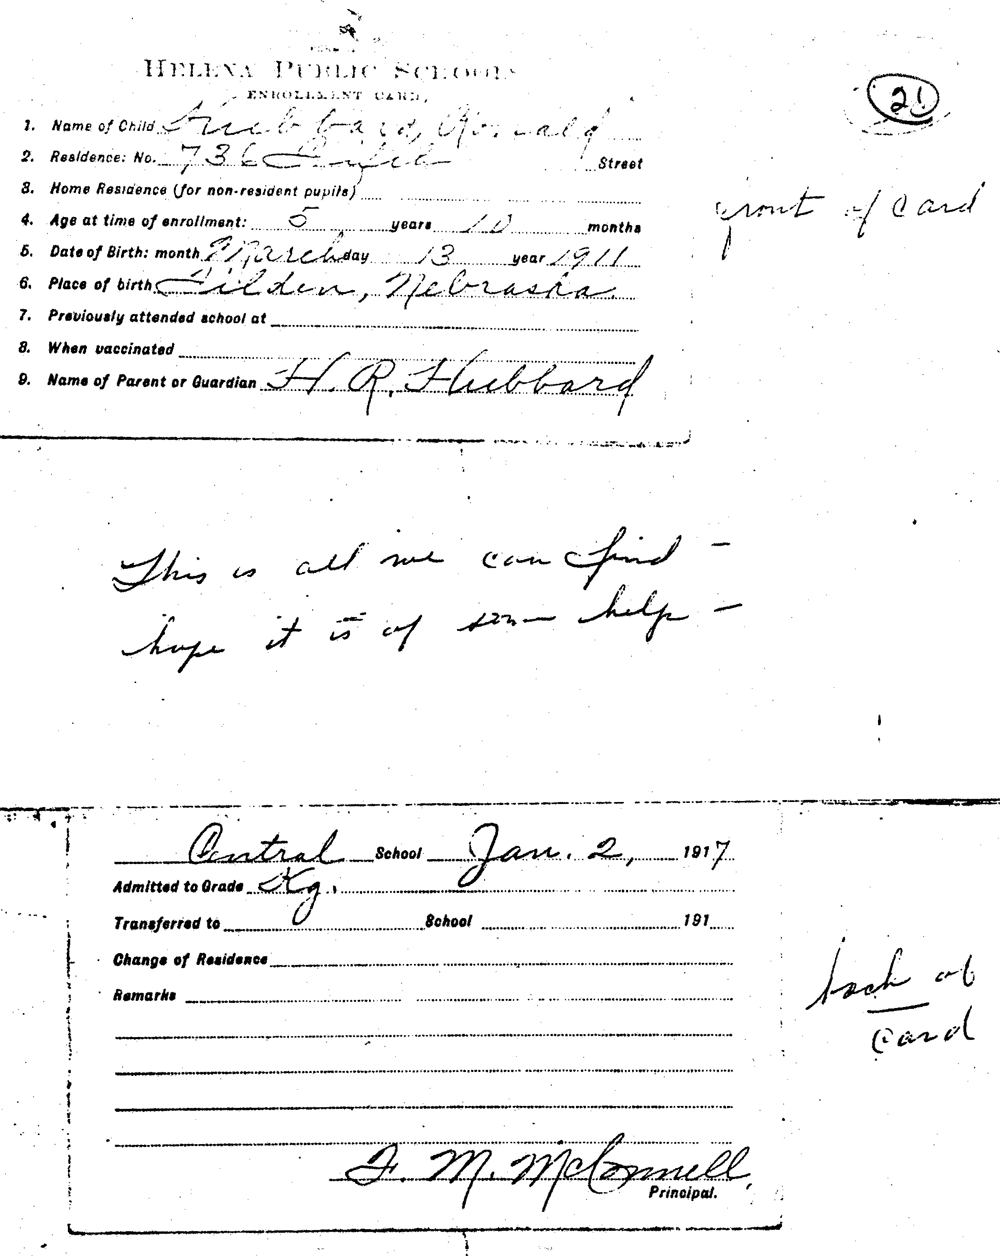 HELENA PUBLIC SCHOOLS
ENROLLMENT CARD.
21
1. Name of Child Hubbard, Ronald
2. Residence: No. 736 Street
3. Home Residence (for non-resident pupils)
front of card
4. Age at time of enrollment: 5 years 10 months
5. Date of Birth: month March day 13 year 1911
6. Place of birth Tilden, Nebraska.
7. Previously attended school at
8. When vaccinated
9. Name of Parent or Guardian H. R. Hubbard
This is all we can find -
hope it is of some help -
Central School Jan. 2, 1917
Admitted to Grade Kg.
Transferred to School 191
Change of Residence
Remarks
back of
card
F. M. McConnell
Principal.